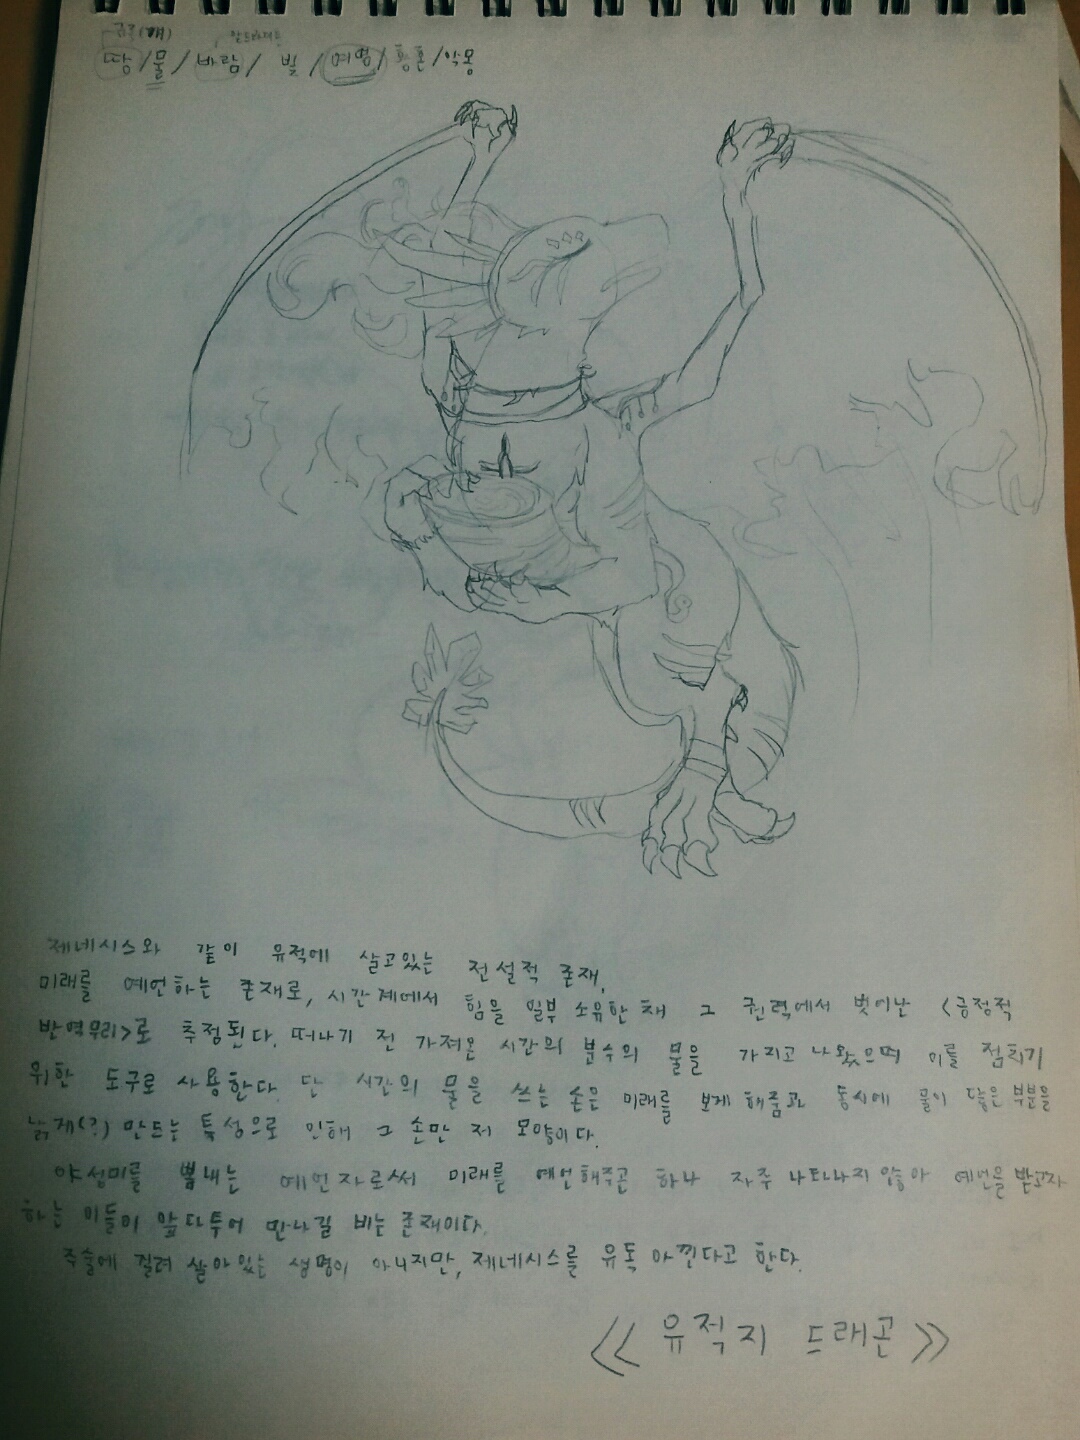 땅/물/바람/ 빛/여명/황혼/악몽
제네시스와 같이 유적에 살고있는 전설적 존재.
미래를 예언하는 존재로, 시간계에서 힘을 일부 소유한 채 그 권력에서 벗어난 <긍정적
반역무리>로 추정된다. 떠나기 전 가져온 시간의 분수의 물을 가지고 나왔으며 이를 점치기
위한 도구로 사용한다. 단 시간의 물을 쓰는 손은 미래를 보게 해줌과 동시에 물이 닿은 부분을
늙게(?) 만드는 특성으로 인해 그 손만 저 모양이다.
야성미를 뽐내는 예언자로써 미래를 예언해주곤 하나 자주 나타나지 않아 예언을 받고자
하는 이들이 앞다투어 만나길 비는 존재이다.
주술에 걸려 살아있는 생명이 아니지만, 제네시스를 유독 아낀다고 한다.
<< 유적지 드래곤 >>